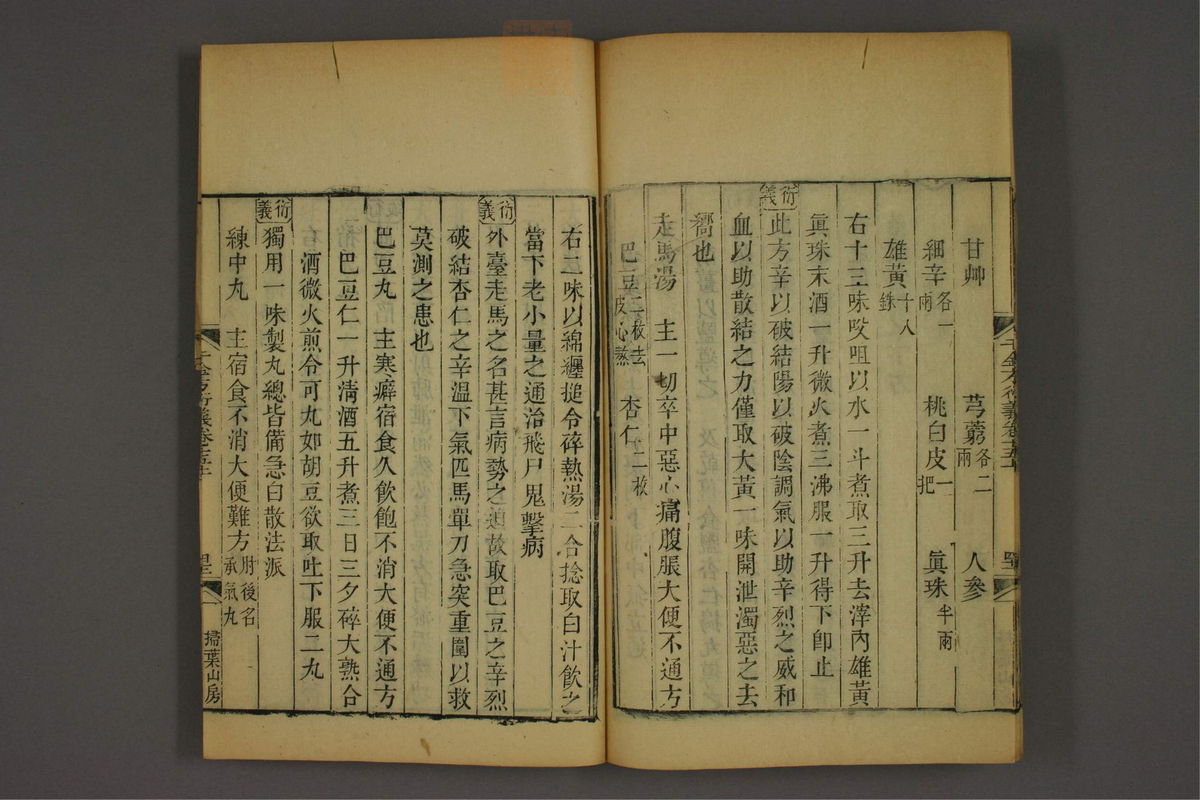 甘艸 芎藭各二兩 人參
細辛各一兩 桃白皮一把 眞珠半兩
雄黃十八銖
右十三味㕮咀以水一斗煮取三升去滓內雄黃
眞珠末酒一升微火煮三沸服一升得下卽止
衍義
此方辛以破結陽以破陰調氣以助辛烈之威和
血以助散結之力僅取大黃一味開泄濁惡之去
嚮也
走馬湯 主一切卒中惡心痛腹脹大便不通方
巴豆二枚去皮心熬 杏仁二枚
右二味以綿纏搥令碎熱湯二合捻取白汁飲之
當下老小量之通治飛尸鬼擊病
衍義
外臺走馬之名甚言病勢之迫故取巴豆之辛烈
破結杏仁之辛溫下氣匹馬單刀急突重圍以救
莫測之患也
巴豆丸 主寒癖宿食久飲飽不消大便不通方
巴豆仁一升淸酒五升煮三日三夕碎大熟合
酒微火煎令可丸如胡豆欲取吐下服二丸
衍義
獨用一味製丸總皆備急白散法派
練中丸 主宿食不消大便難方肘後名承氣丸
掃葉山房